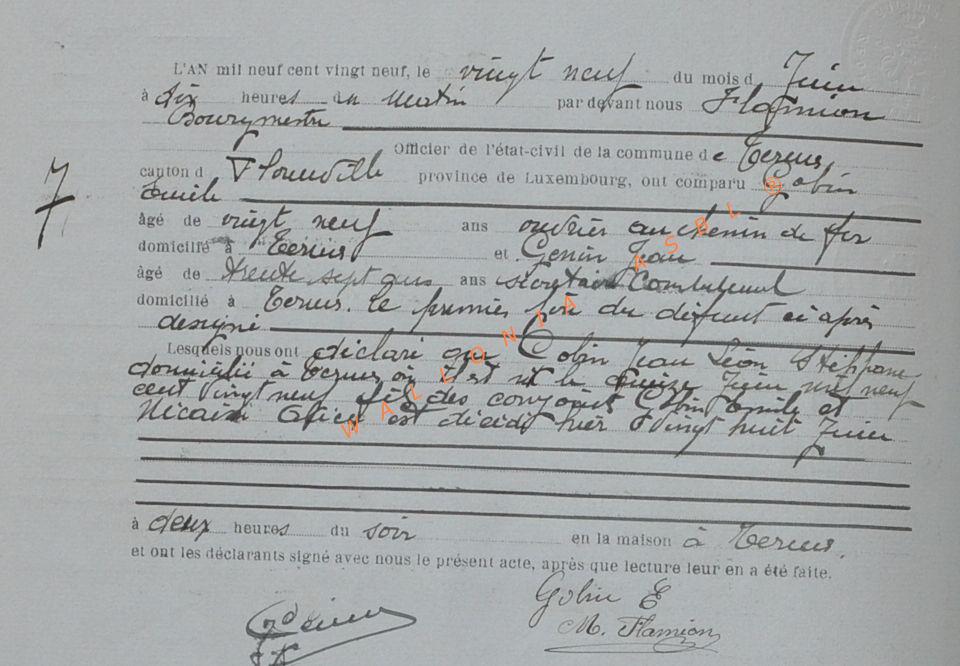 L'AN mil neuf cent vingt neuf, le vingt neuf du mois d Juin
à dix heures du matin par devant nous Flamion
Bourgmestre
Officier de l'état-civil de la commune de Termes
canton d Florenville province de Luxembourg, ont comparu Gobin
Emile
7
âgé de vingt neuf ans ouvrier au chemin de fer
domicilié à Termes et Genin Jean
âgé de trente sept ans ans secrétaire Communal
domicilié à Termes. Le premier père du défunt ci après
désigné
Lesquels nous ont déclaré que Gobin Jean Léon Stéphane
domicilié à Termes où il est né le quinze Juin mil neuf
cent vingt neuf fils des conjoints Gobin Emile et
Nicaise est décédé hier vingt huit Juin
à deux heures du soir en la maison à Termes.
et ont les déclarants signé avec nous le présent acte, après que lecture leur en a été faite.
Gobin E
M. Flamion
WALLONIA ASBL ®